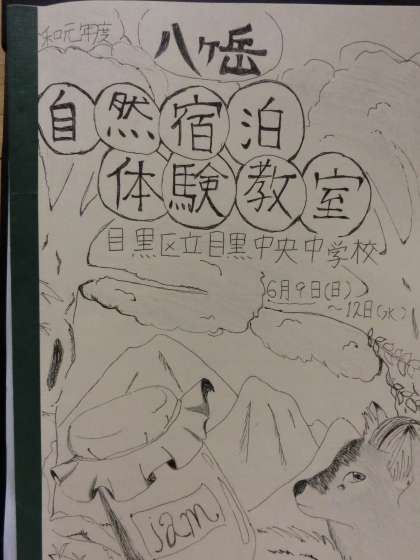 令和元年度
八ヶ岳
自然宿泊
体験教室
目黒区立目黒中央中学校
6月9日(日)
～12日(水)
jam